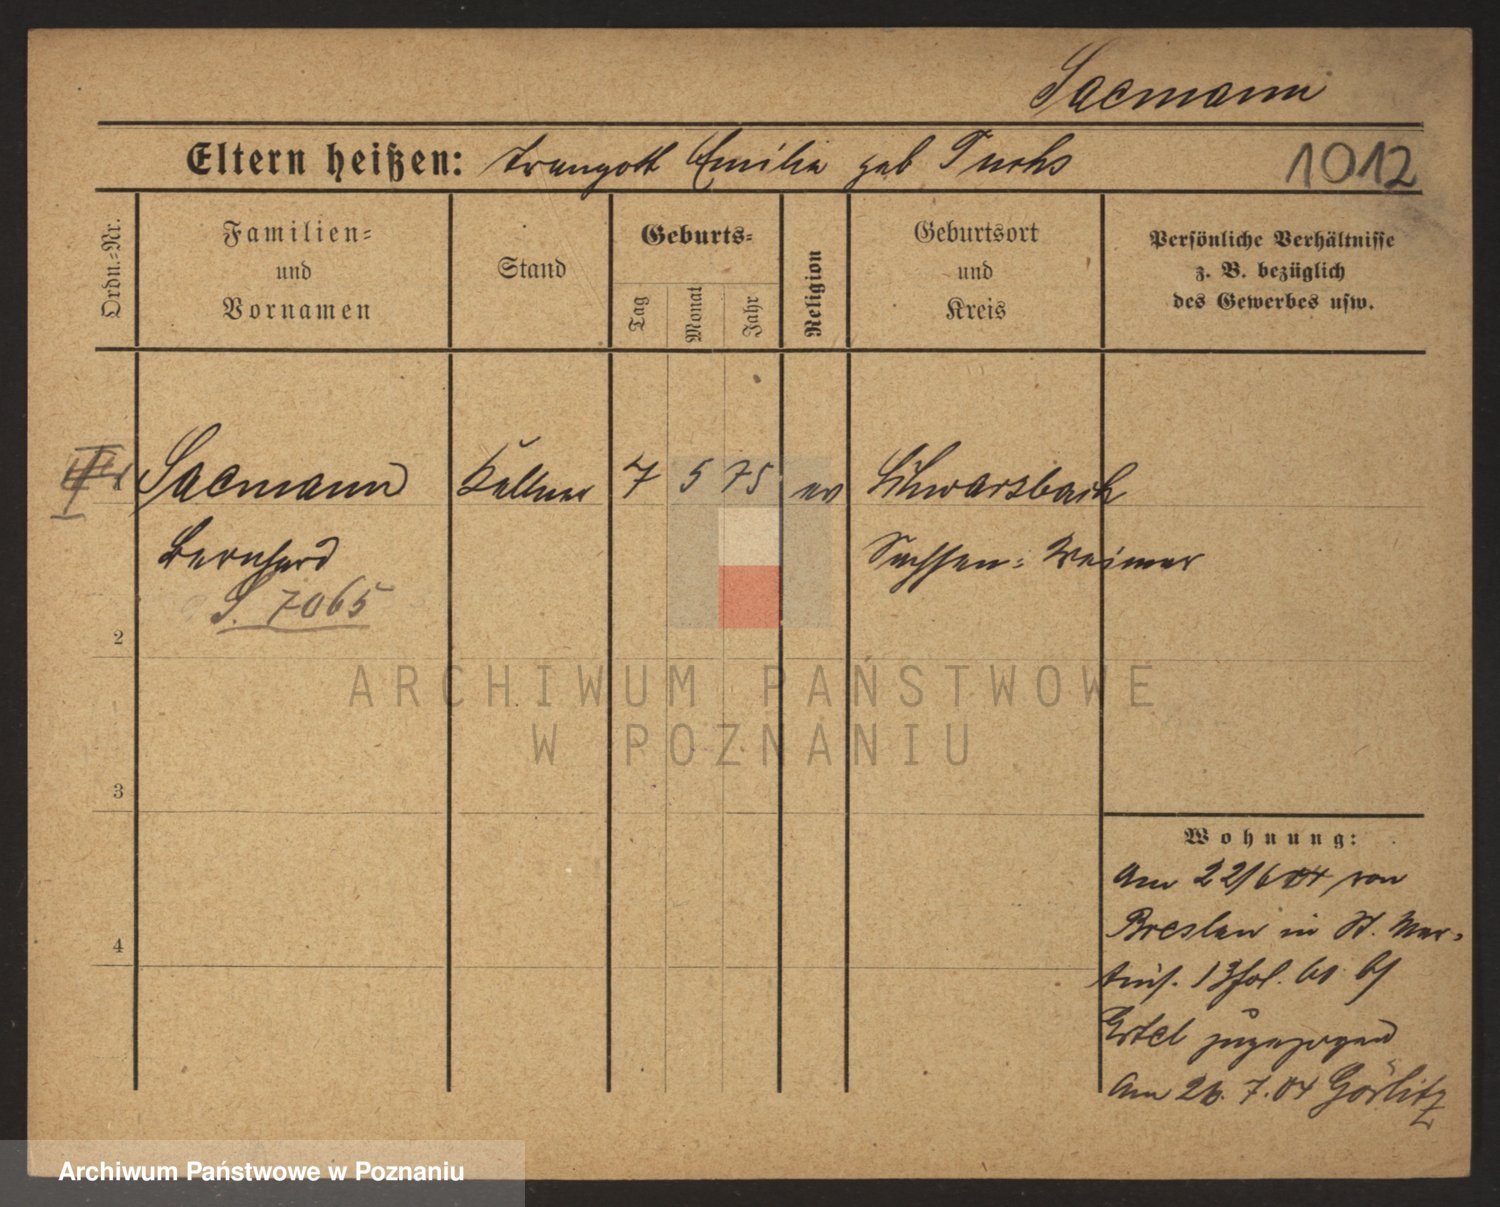 Sacmann
Eltern heißen: Traugott Emilie geb Fuchs
1012
Ordn.-Nr.
Familien-
und
Vornamen
Stand
Geburts-
Tag
Monat
Jahr
Religion
Geburtsort
und
Kreis
Persönliche Verhältnisse
z. B. bezüglich
des Gewerbes usw.
1
Sacmann
Kellner
7
5
75
ev
Schwarzbach
Bernhard
Sachsen-Weimar
S. 7065
2
ARCHIWUM PAŃSTWOWE
W POZNANIU
3
Wohnung:
Am 22/6 04 von
Breslau in St. Mar-
tinst. 13
zugezogen
Am 26. 7. 04 Görlitz
4
Archiwum Państwowe w Poznaniu